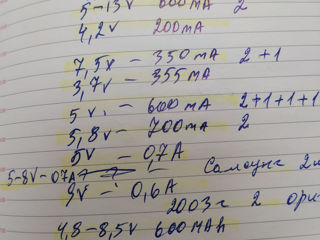 5-13v 600mA 2
4,2v 200mA
7,5v - 350mA 2+1
3,7v - 355mA
5v. - 600mA 2+1+1+1
5,8v - 700mA 2
5v - 0,7A
5-8v-07A Самсунг
9v - 0,6A
2003г 2
4,8-8,5v 600mAh